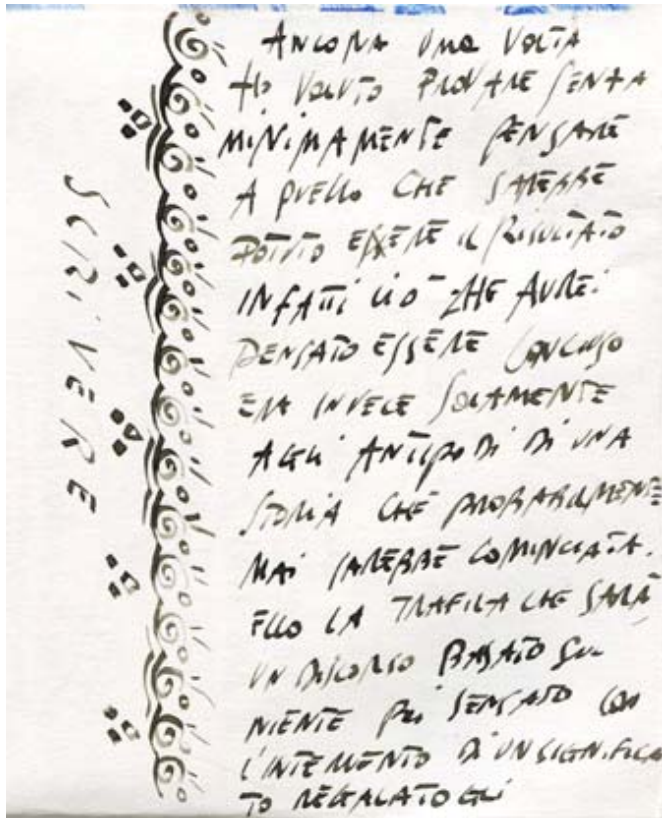 SCRIVERE
ANCORA UNA VOLTA
HO VOLUTO PROVARE SENZA
MINIMAMENTE PENSARE
A QUELLO CHE SAREBBE
POTUTO ESSERE IL RISULTATO
INFATTI CIO' CHE AVREI
PENSATO ESSERE CONCLUSO
ERA INVECE SOLAMENTE
AGLI ANTIPODI DI UNA
STORIA CHE PROBABILMENTE
MAI SAREBBE COMINCIATA.
LA TRAFILA CHE SARÀ
UN DISCORSO BASATO SUL
NIENTE POI SENSATO CON
L'INTERVENTO DI UN SIGNIFICA
TO REGALATOGLI